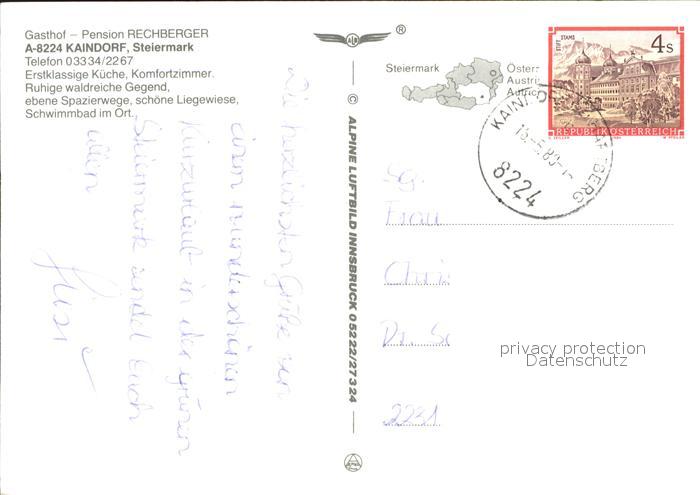 Gasthof – Pension RECHBERGER
A-8224 KAINDORF, Steiermark
Telefon 03334/2267
Erstklassige Küche, Komfortzimmer.
Ruhige waldreiche Gegend,
ebene Spazierwege, schöne Liegewiese,
Schwimmbad im Ort.
Die herzlichsten Grüße von
einem wunderschönen
Kurzurlaub in der grünen
Steiermark sendet Euch
allen
© ALPINE LUFTBILD INNSBRUCK 05222/27324
®
Steiermark
Österr
Austri
Autric
STIFT STAMS
4s
REPUBLIK ÖSTERREICH
KAINDORF
8224
Sg.
Frau
Chris
Dr. Sc
2231
privacy protection
Datenschutz